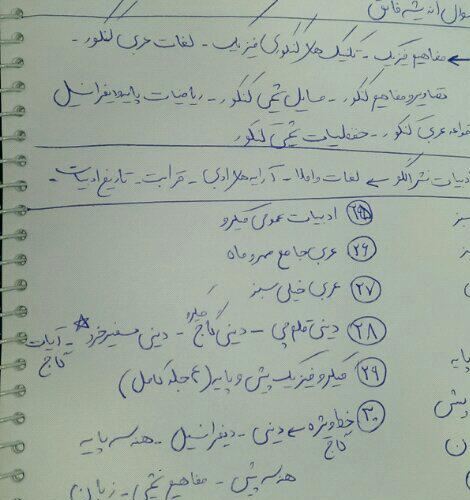 سوال اندیشه فائق
← مفاهیم فیزیک - تکنیک های کنکوری فیزیک - لغات عربی کنکور -
تصاویر و مفاهیم کنکور - مسایل شیمی کنکور - ریاضیات پایه و دیفرانسیل
قواعد عربی کنکور - حفظیات شیمی کنکور
ادبیات نشر الگو ← لغات و املا - آرایه های ادبی - قرابت - تاریخ ادبیات -
۲۵ ادبیات عمومی میکرو
۲۶ عربی جامع مهروماه
۲۷ عربی خیلی سبز
۲۸ دینی قلم چی - دینی گاج - دینی سفیر خرد - آیات گاج
۲۹ میکرو فیزیک پیش و پایه (۲ جلد کامل)
۳۰ خط ویژه گاج ← دینی - دیفرانسیل - هندسه پایه
هندسه پیش - مفاهیم شیمی - زبان
سبز
پایه
پیش